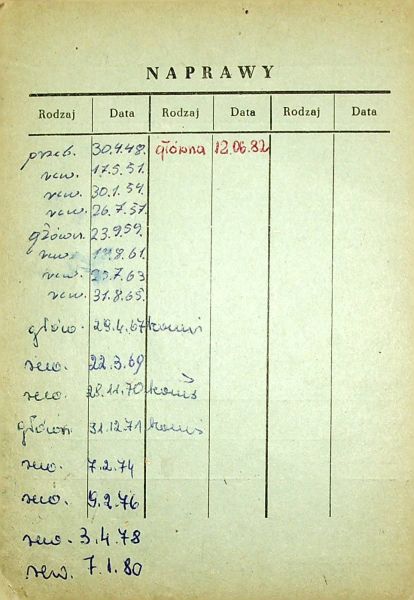 NAPRAWY
Rodzaj Data Rodzaj Data Rodzaj Data
przeb. 30.4.48. główna 12.06.82
rew. 17.5.51.
rew. 30.1.54.
rew. 26.7.57.
główn. 23.9.59.
rew. 8.61.
rew. 7.63
rew. 31.8.65.
głów. 29.4.67
rew. 22.3.69
rew. 28.11.70
główn. 31.12.71
rew. 7.2.74
rew. 9.2.76
rew. 3.4.78
rew. 7.1.80